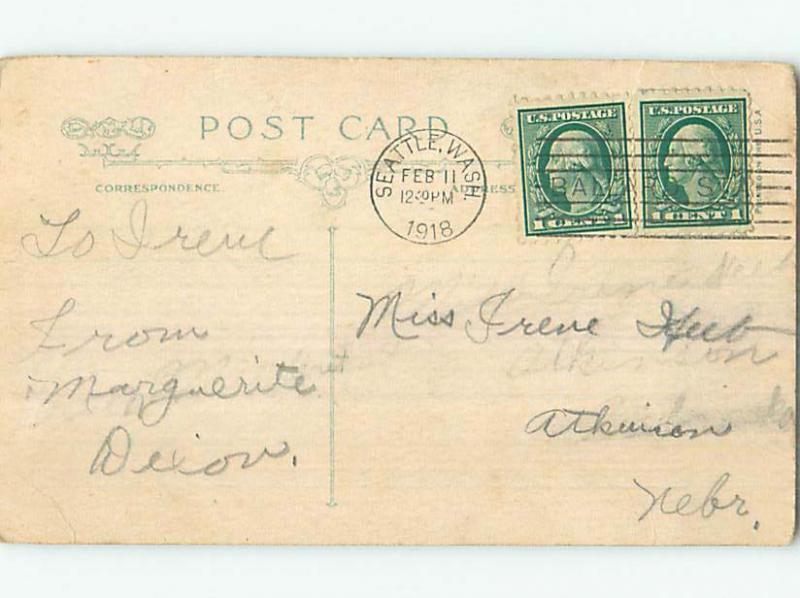 POST CARD
CORRESPONDENCE.
ADDRESS
SEATTLE, WASH.
FEB 11
12 PM
1918
U.S. POSTAGE
1 CENT 1
U.S. POSTAGE
1 CENT 1
To Irene
From
Marguerite
Dixon.
Miss Irene
Atkinson
Nebr.